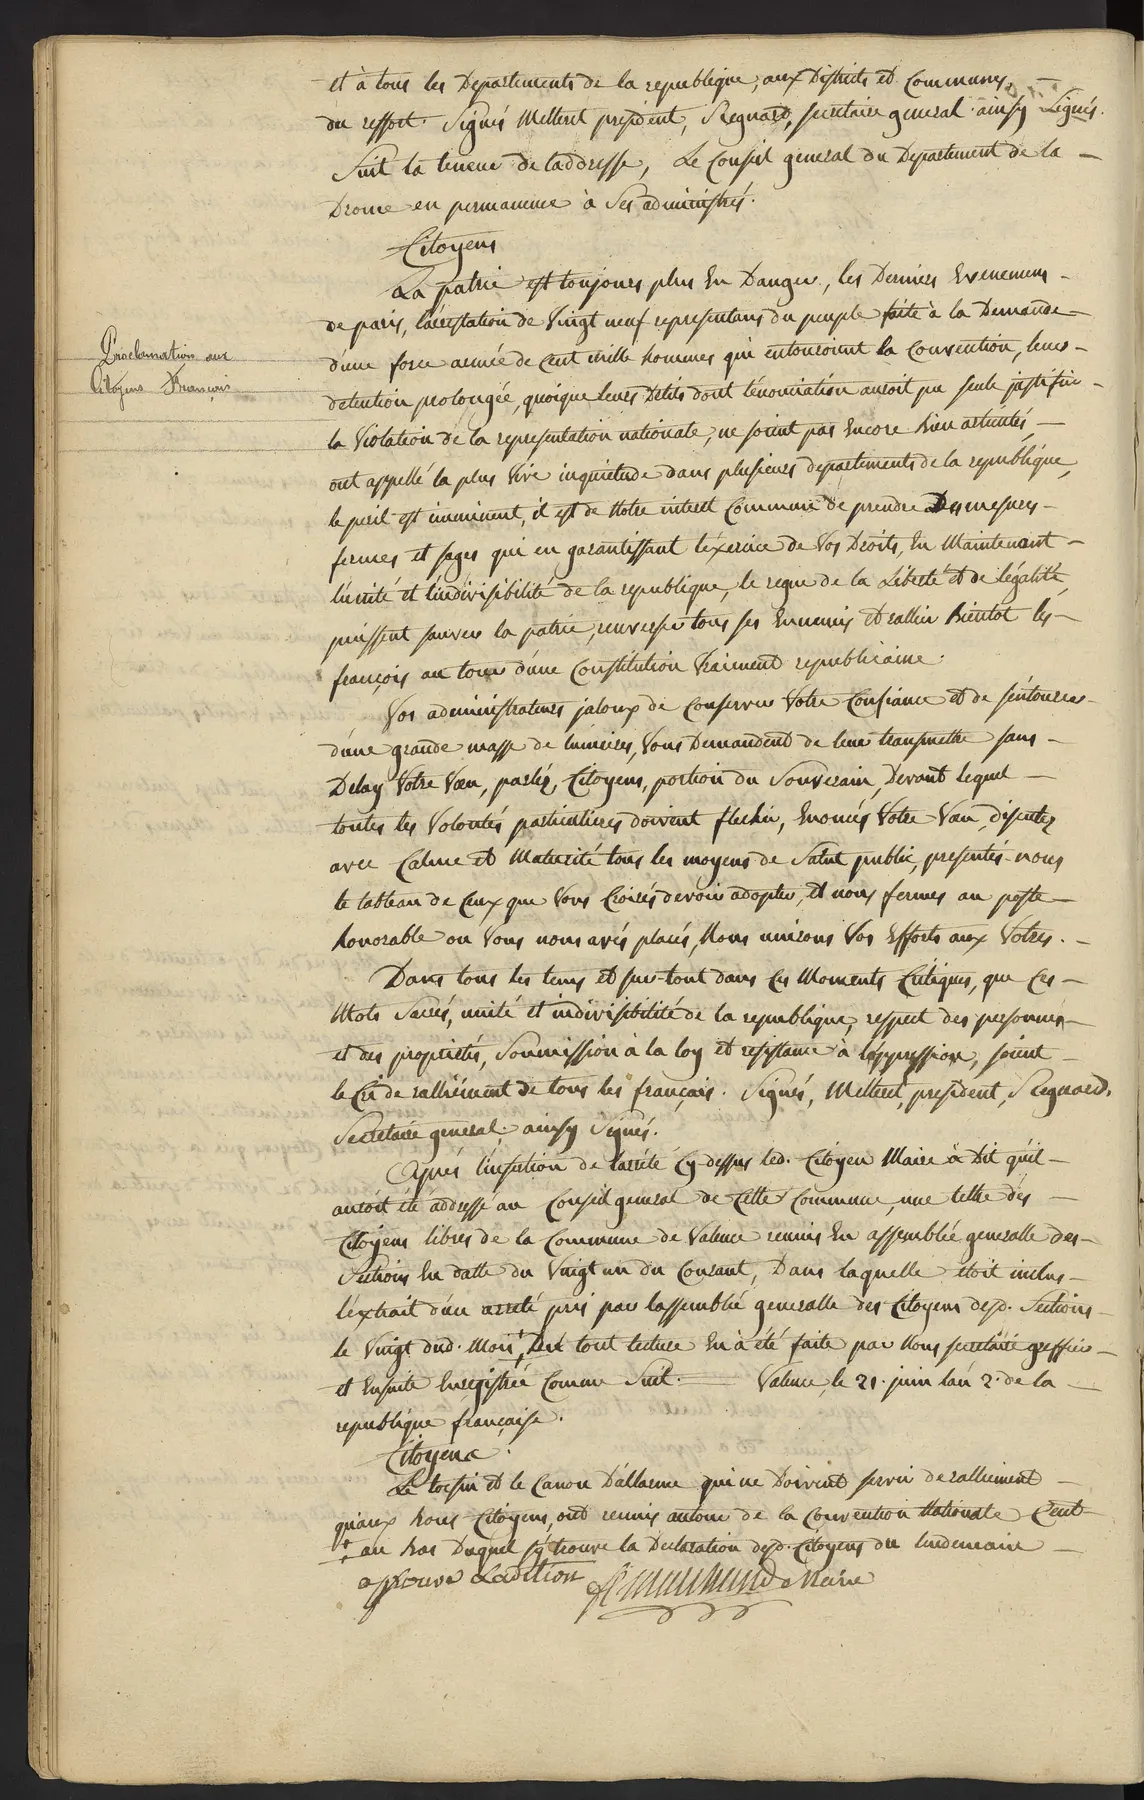 et à tous les Departements de la republique, aux Districts et Communes
du ressort. Signés Melleret president, Regnard, secretaire general. ainsy Signés.
Suit la teneur de laddresse, Le Conseil general du Departement de la
Drome en permanence à Ses administrés.
Citoyens
La patrie est toujours plus En Danger, les Derniers Evenemens
de paris, l'arrestation de Vingt neuf representans du peuple faite à la Demande
d'une force armée de Cent mille hommes qui entouroient la Convention, leur
Proclamation aux
Citoyens Francois
detention prolongée, quoique leurs Delits dont l'énonciation auroit pu seule justifier
la Violation de la representation nationale, ne soient pas Encore Bien articulés,
ont appellé la plus Vive inquietude dans plusieurs departements de la republique,
le peril est imminent, il est de Notre interet Commun de prendre Des mesures
fermes et sages qui en garantissant l'éxercice de Vos Droits, En Maintenant
l'unité et l'indivisibilité de la republique, le regne de la Liberté et de l'égalité,
puissent sauver la patrie, renverser tous ses Ennemis et rallier Bientot les
françois au tour d'une Constitution Vraiment republicaine.
Vos administrateurs jaloux de Conserver Votre Confiance et de s'entourer
d'une grande masse de lumieres, Vous Demandent de leur transmettre sans
Delay Votre Vœu, parlés, Citoyens, portion du Souverain, Devant lequel
toutes les Volontés particulieres doivent flechir, Enoncés Votre Vœu, discutez
avec Calme et Maturité tous les moyens de Salut public, presentés-nous
le tableau de Ceux que Vous Croirés devoir adopter, et nous fermes au poste
honorable ou Vous nous avés placés, Nous unirons Nos Efforts aux Votres.
Dans tous les tems et sur-tout dans Ces Moments Critiques, que Ces
Mots Sacrés, unité et indivisibilité de la republique, respect des personnes
et des propriétés, Soumission à la loy et resistance à l'oppression, soient
le Cri de ralliément de tous les français. Signés, Melleret, president, Regnard,
Secretaire general, ainsy Signés.
Après l'insertion de l'arrété Cy-dessus led. Citoyen Maire à Dit qu'il
auroit été addressé au Conseil general de Cette Commune, une lettre des
Citoyens libres de la Commune de Valence reunis En assemblée generalle des
Sections En datte du Vingt un du Courant, Dans laquelle étoit inclus
l'extrait d'un arreté pris par lassemblée generalle des Citoyens desd. Sections
le Vingt dud. Mois, De tout lecture En à été faite par Nous secretaire greffier
et Ensuite Enregistrée Comme Suit. Valence, le 21. juin l'an 2. de la
republique française.
Citoyens.
Le tocsin et le Canon D'allarme qui ne Doivent servir de ralliement
qu'aux bons Citoyens, ont reunis autour de la Convention Nationale Cent
+ au bas Duquel s'y trouve la Declaration desd. Citoyens du lendemain
approuvé Ladition maire